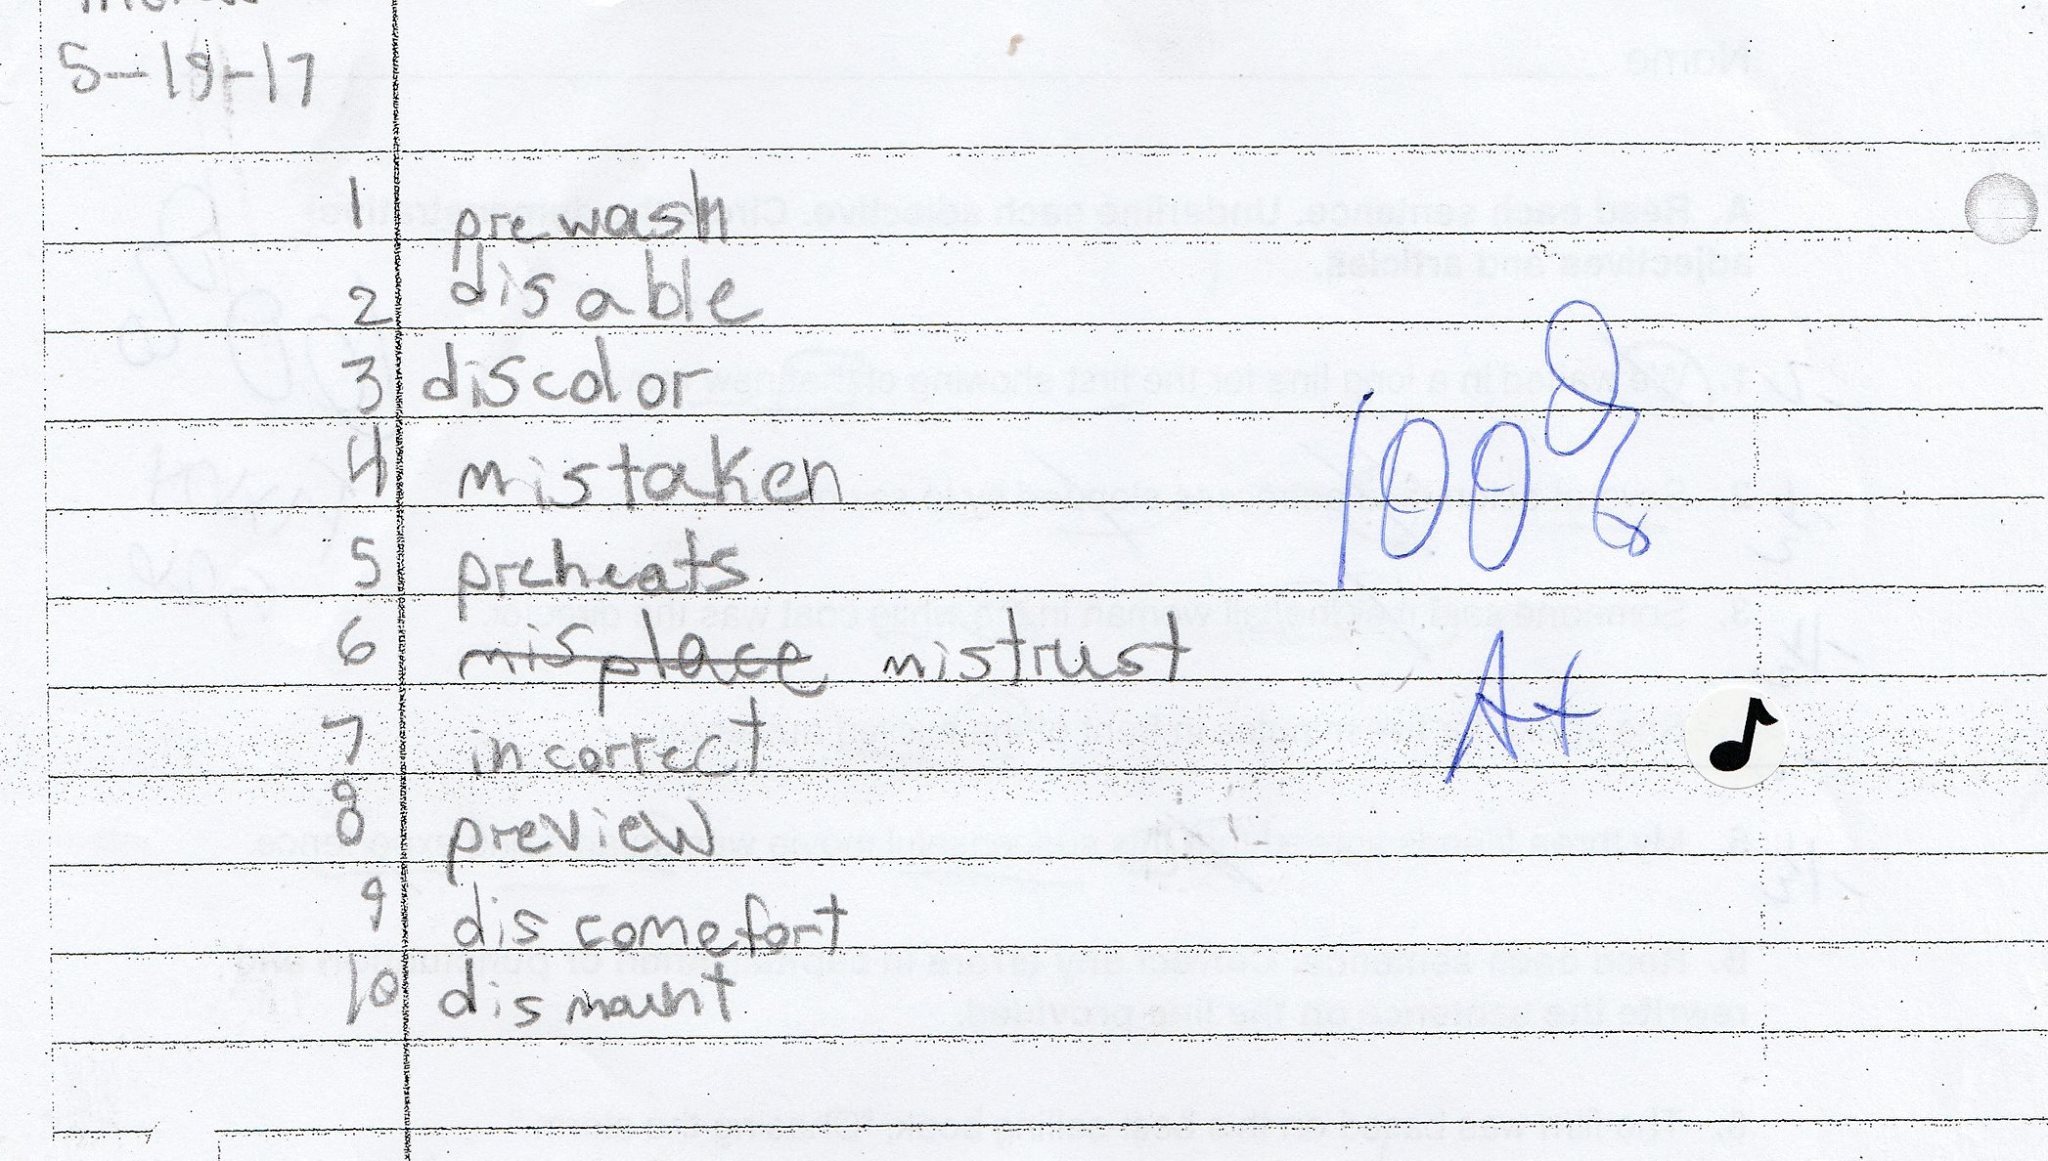 5-19-17
1 prewash
2 disable
3 discolor
4 mistaken
5 preheats
6 misplace mistrust
7 incorrect
8 preview
9 discomefort
10 dismount
100%
A+